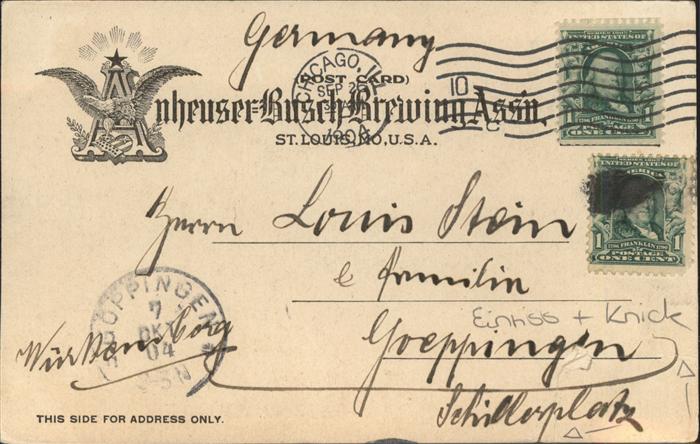 Germany
(POST CARD)
Anheuser-Busch Brewing Ass'n.
ST. LOUIS, MO., U.S.A.
CHICAGO, ILL.
SEP 26
10
C
SERIES 1902
UNITED STATES OF
AMERICA
1 FRANKLIN 1
POSTAGE
ONE CENT
SERIES 1902
UNITED STATES OF
AMERICA
1 FRANKLIN 1
POSTAGE
ONE CENT
Herrn Louis Stein
& Familie
Einriss + Knick
Goeppingen
Schillerplatz
Württemberg
GÖPPINGEN
7
OKT
04
THIS SIDE FOR ADDRESS ONLY.